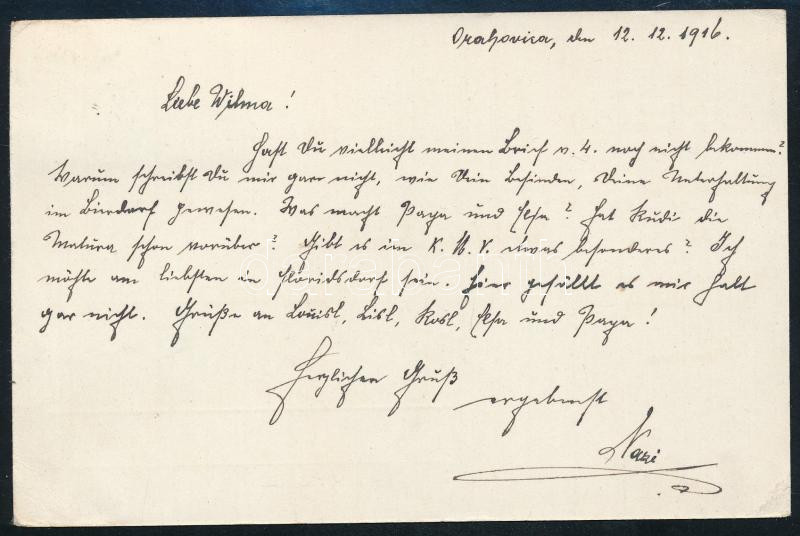 Orahovica, den 12. 12. 1916.
Liebe Wilma!
Hast Du vielleicht meinen Brief v. 4. noch nicht bekommen?
Warum schreibst Du mir garr nicht, wie Dein Befinden, Deine Unterhaltung
im gewesen. Was macht Papa und Elsa? Hat Rudi die
Matura schon vorüber? Gibt es im K. M. V. etwas besonderes? Ich
möchte am liebsten in Floridsdorf sein. Hier gefällt es mir halt
gar nicht. Grüße an Louisl, Lisl, Rosl, Elsa und Papa!
Herzlichen Gruß
ergebenst
Nazi